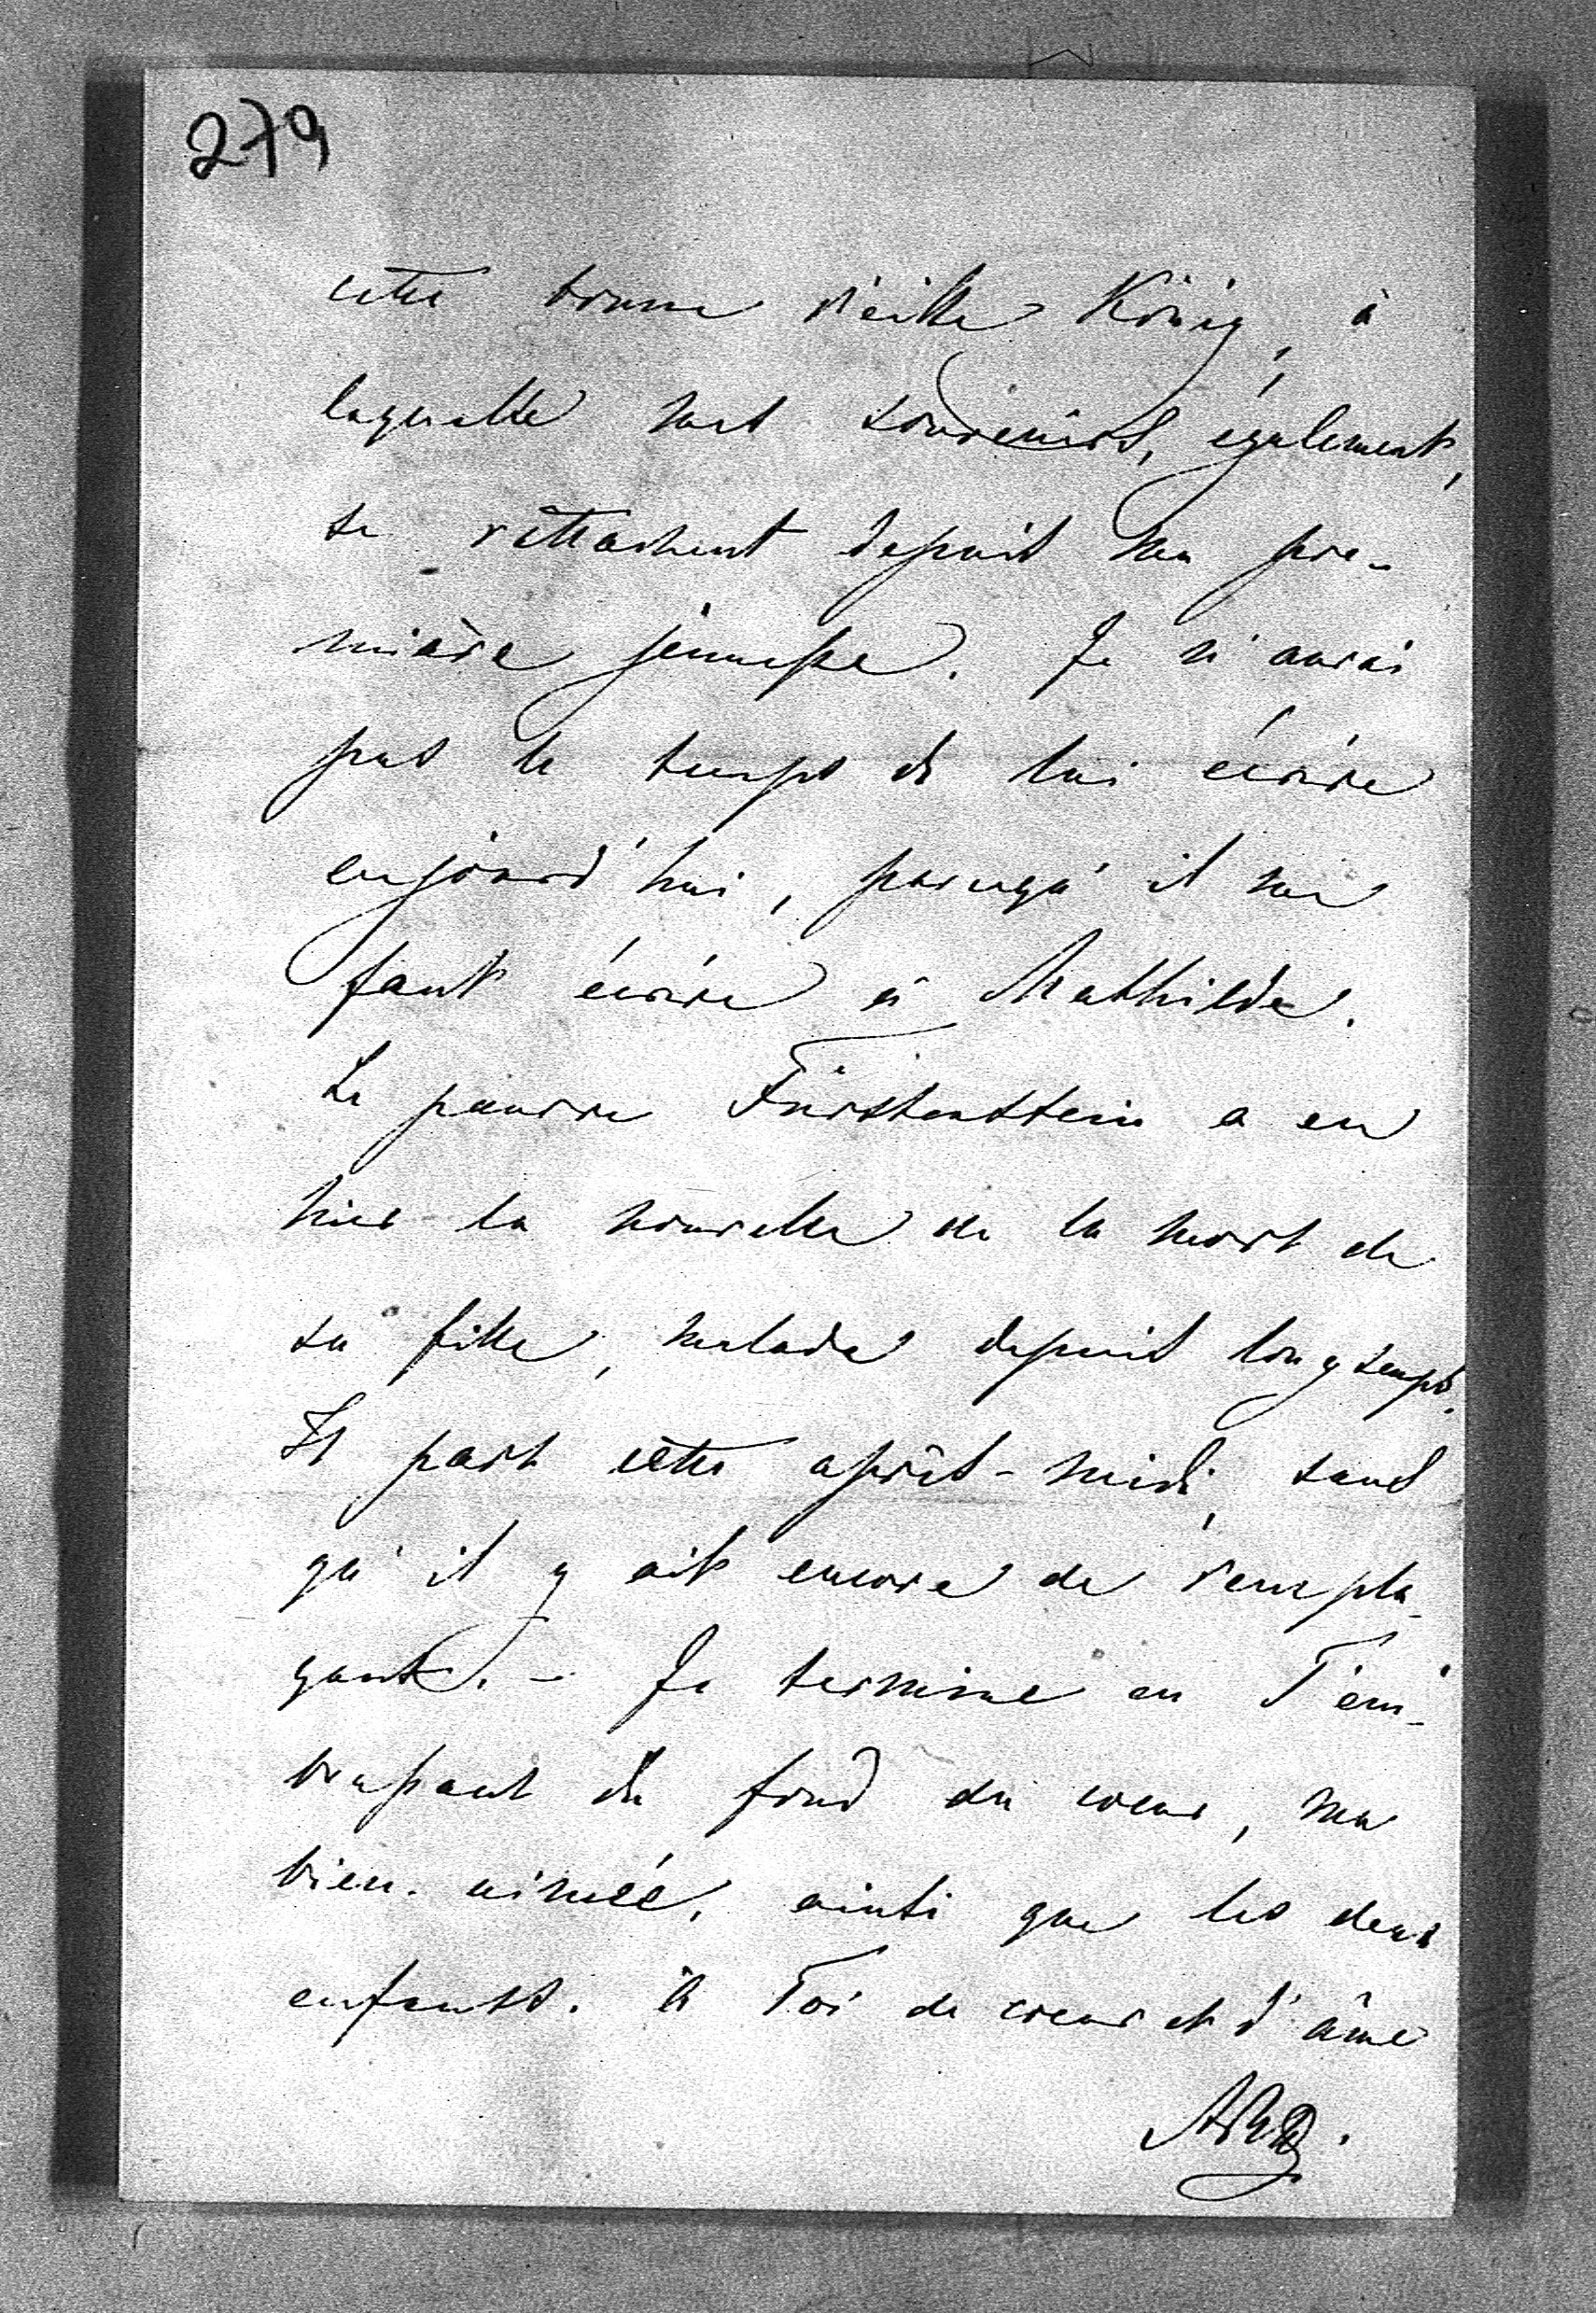 279
cette bonne vieille König, à
laquelle mes souvenirs, également,
se rattachent depuis ma pre-
mière jeunesse. Je n'aurai
pas le temps de lui écrire
aujourd'hui, parcequ'il me
faut écrire à Mathilde.
Le pauvre Fürstenstein a eu
hier la nouvelle de la mort de
sa fille, malade depuis longtemps.
Il part cette après-midi, sans
qu'il y ait encore de rempla-
çant. – Je termine en T'em-
brassant du fond du coeur, ma
bien-aimée, ainsi que les deux
enfants. à Toi de coeur et d'âme